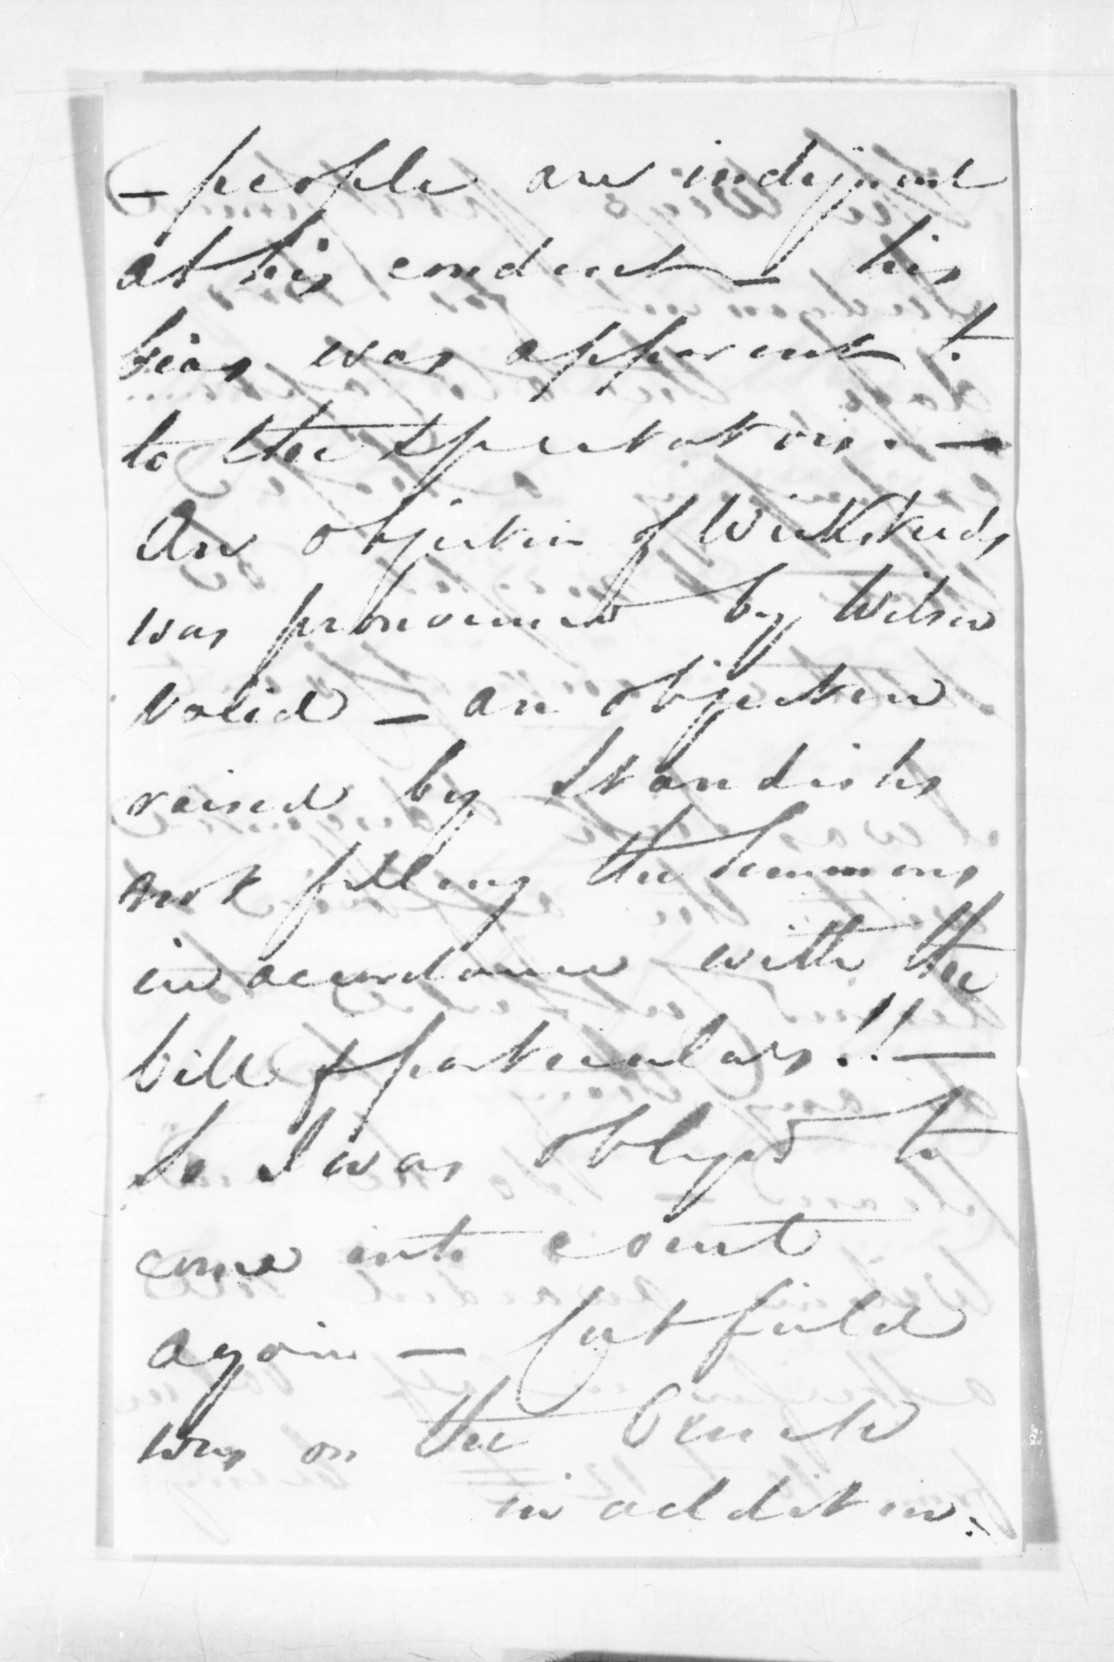 - people are indignant
at his conduct - his
bias was apparent to
to the spectators. -
An objection of Wicksteeds
was pronounced by Wilson
valid - an objection
raised by Standishs
not filling the Summons
in accordance with the
bill of particulars!! -
So I was obliged to
come into court
again - Catfield
was on the Bench
in addition.